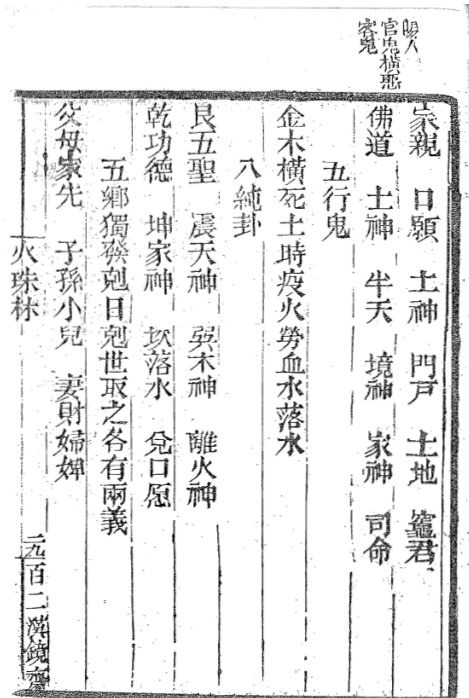 人
官鬼橫惡
客鬼
家親 口願 土神 門戸 土地 竈君
佛道 土神 半天 境神 家神 司命
五行鬼
金木橫死土時疫火勞血水落水
八純卦
艮五聖 震天神 巽木神 離火神
乾功德 坤家神 坎落水 兌口愿
五鄉獨發剋日剋世取之各有兩義
父母家先 子孫小兒 妻財婦婢
火珠林 二九 百二漢鏡齋